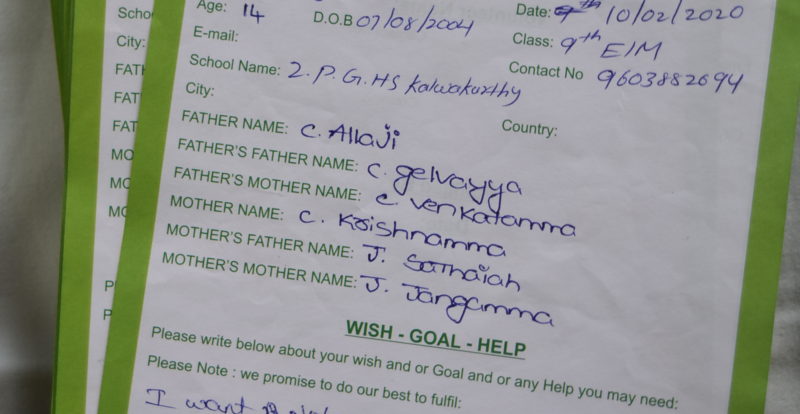 Age: 14 D.O.B 07/08/2004 Date: 10/02/2020
E-mail: Class: 9th EIM
School Name: Z.P.G.HS Kalwakurthy Contact No 9603882694
City: Country:
FATHER NAME: C. Allaji
FATHER'S FATHER NAME: C. gelvayya
FATHER'S MOTHER NAME: C. venkatamma
MOTHER NAME: C. Krishnamma
MOTHER'S FATHER NAME: J. Sathaiah
MOTHER'S MOTHER NAME: J. Jangamma
WISH - GOAL - HELP
Please write below about your wish and or Goal and or any Help you may need:
Please Note : we promise to do our best to fulfil:
I want
City: